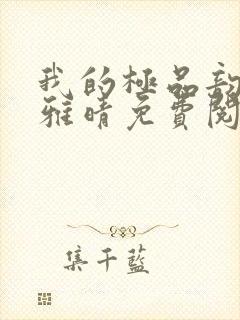 我的極品
雅晴免費閱
集千藍